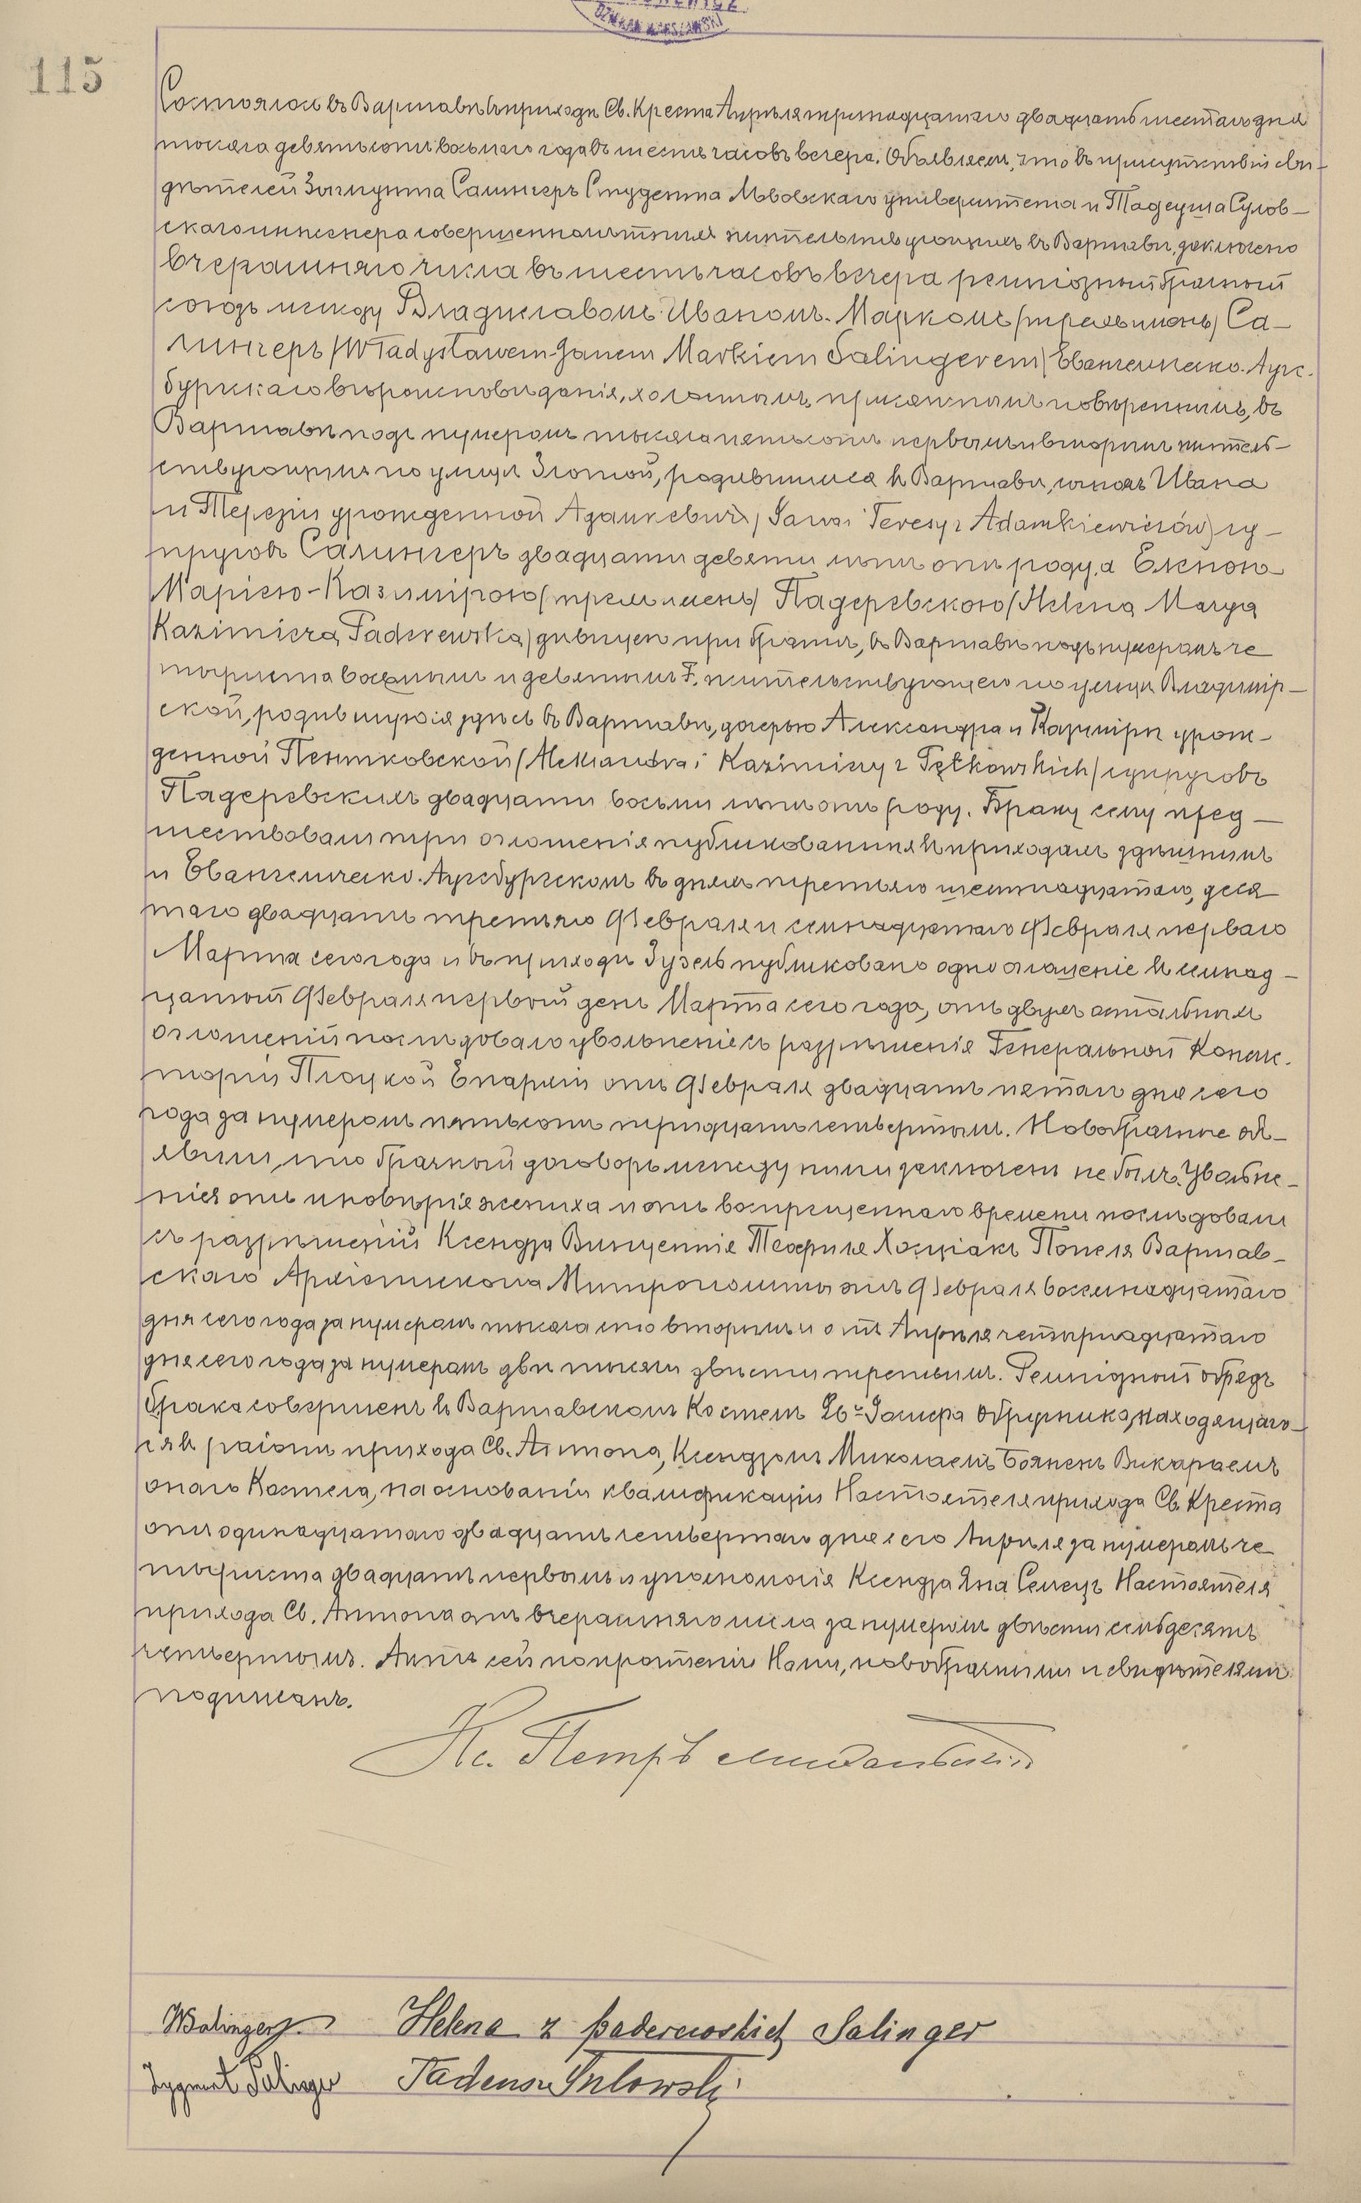 DZIEKAN WARSZAWSKI
115
Состоялось въ Варшавѣ въ приходѣ Св. Креста Апрѣля тринадцатаго двадцать шестаго дня
тысяча девятьсотъ восьмаго года въ шесть часовъ вечера. Объявляемъ, что въ присутствіи сви-
дѣтелей Зыгмунта Салингеръ Студента Львовскаго университета и Тадеуша Сулов-
скаго инженера совершеннолѣтнихъ жительствующихъ въ Варшавѣ, заключенъ
вчерашняго числа въ шесть часовъ вечера религіозный брачный
союзъ между Владиславомъ-Иваномъ-Маркомъ (трехъ именъ) Са-
лингеръ (Władysławem-Janem Markiem Salingerem) Евангелическо-Аугс-
бургскаго вѣроисповѣданія, холостымъ, присяжнымъ повѣреннымъ, въ
Варшавѣ подъ нумеромъ тысяча пятьсотъ первымъ и вторымъ житель-
ствующимъ по улицѣ Злотой, родившимся въ Варшавѣ, сыномъ Ивана
и Терезіи урожденной Адамкевичъ (Jana i Teresy z Adamkiewiczów) су-
пруговъ Салингеръ двадцати девяти лѣтъ отъ роду, а Еленою
Маріею-Казимірою (трехъ именъ) Падеревскою (Helena Marya
Kazimiera Paderewska) дѣвицею при братѣ, въ Варшавѣ подъ нумеромъ че
тыриста восьмымъ и девятымъ F. жительствующею по улицѣ Владимір-
ской, родившуюся здѣсь въ Варшавѣ, дочерью Александра и Казиміры урож-
денной Пентковской (Aleksandra i Kazimiery z Pętkowskich) супруговъ
Падеревскихъ двадцати восьми лѣтъ отъ роду. Браку сему пред-
шествовали три оглашенія публикованныя въ приходахъ здѣшнимъ
и Евангелическо-Аугсбургскомъ въ дняхъ третьяго шестнадцатаго, деся
таго двадцать третьяго Февраля и семнадцатаго Февраля перваго
Марта сего года и въ приходѣ Зузель публиковано одно оглашеніе въ семнад-
цатый Февраля первый день Марта сего года, отъ двухъ остальныхъ
оглашеній послѣдовало увольненіе съ разрѣшенія Генеральной Консис-
торіи Плоцкой Епархіи отъ Февраля двадцать пятаго дня сего
года за нумеромъ пятьсотъ тридцать четвертымъ. Новобрачные объ-
явили, что брачный договоръ между ними заключенъ не былъ. Увольне-
нія отъ иновѣрія жениха и отъ воспрещеннаго времени послѣдовали
съ разрѣшеній Ксендза Винцентія Теофиля Хосціакъ Попеля Варшав-
скаго Архіепископа Митрополиты отъ Февраля восемнадцатаго
дня сего года за нумеромъ тысяча сто вторымъ и отъ Апрѣля четырнадцатаго
дня сего года за нумеромъ двѣ тысячи двѣсти третьимъ. Религіозный обрядъ
брака совершенъ въ Варшавскомъ Костелѣ Св. Іосифа Обручника, находящаго-
ся въ раіонѣ прихода Св. Антона, Ксендзомъ Миколаемъ Боянекъ Викаріемъ
онаго Костела, на основаніи квалификаціи Настоятеля прихода Св. Креста
отъ одинадцатаго двадцать четвертаго дня сего Апрѣля за нумеромъ че
тыриста двадцать первымъ и уполномочія Ксендза Яна Семецъ Настоятеля
прихода Св. Антона отъ вчерашняго числа за нумеромъ двѣсти семьдесятъ
четвертымъ. Актъ сей по прочтеніи Нами, новобрачными и свидѣтелями
подписанъ.
Кс. Петръ
WSalinger Helena z Paderewskich Salinger
Zygmunt Salinger Tadeusz Sułowski